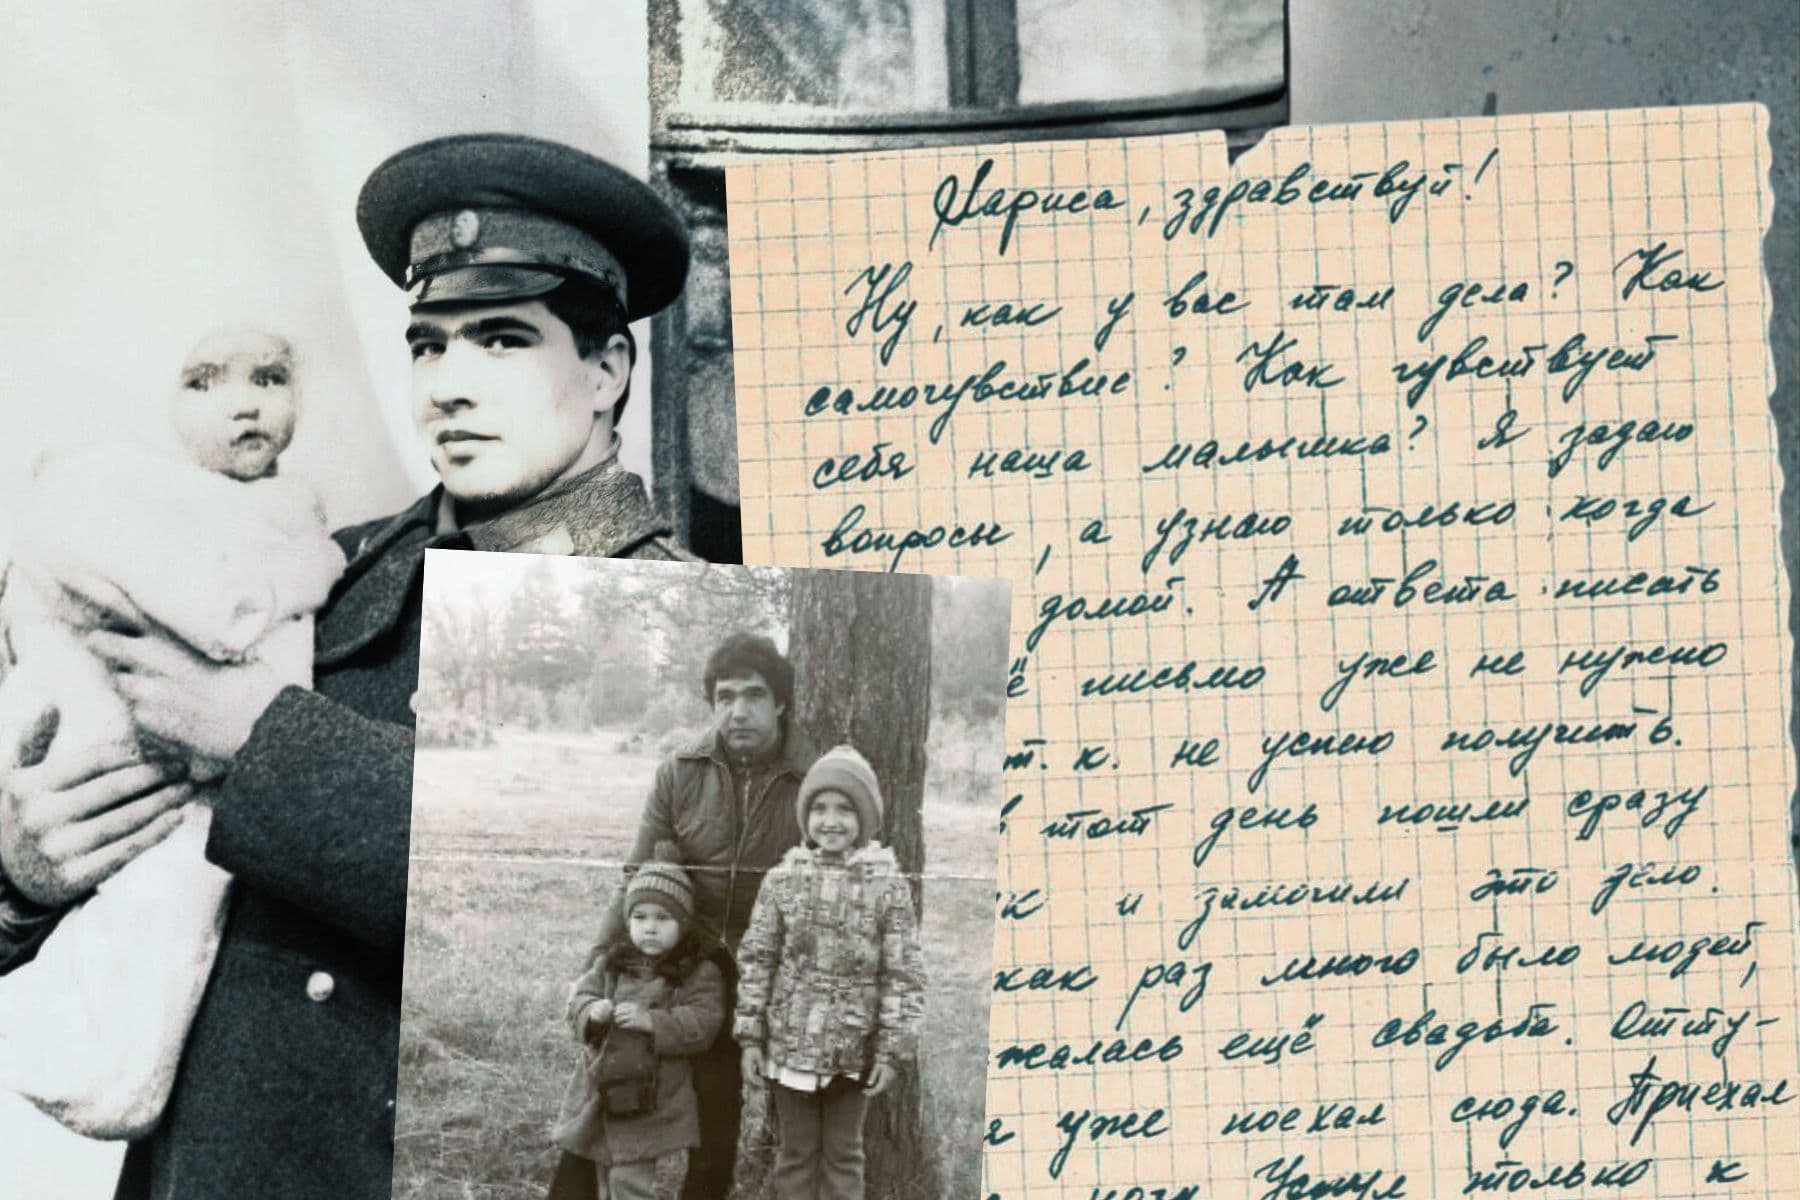 Лариса, здравствуй!
Ну, как у вас там дела? Как
самочувствие? Как чувствует
себя наша малышка? Я задаю
вопросы, а узнаю только когда
домой. А ответа писать
ё письмо уже не нужно
т. к. не успею получить.
в тот день пошли сразу
к и замочили это дело.
как раз много было людей,
жалась ещё свадьба. Отту-
я уже поехал сюда. Приехал
только к